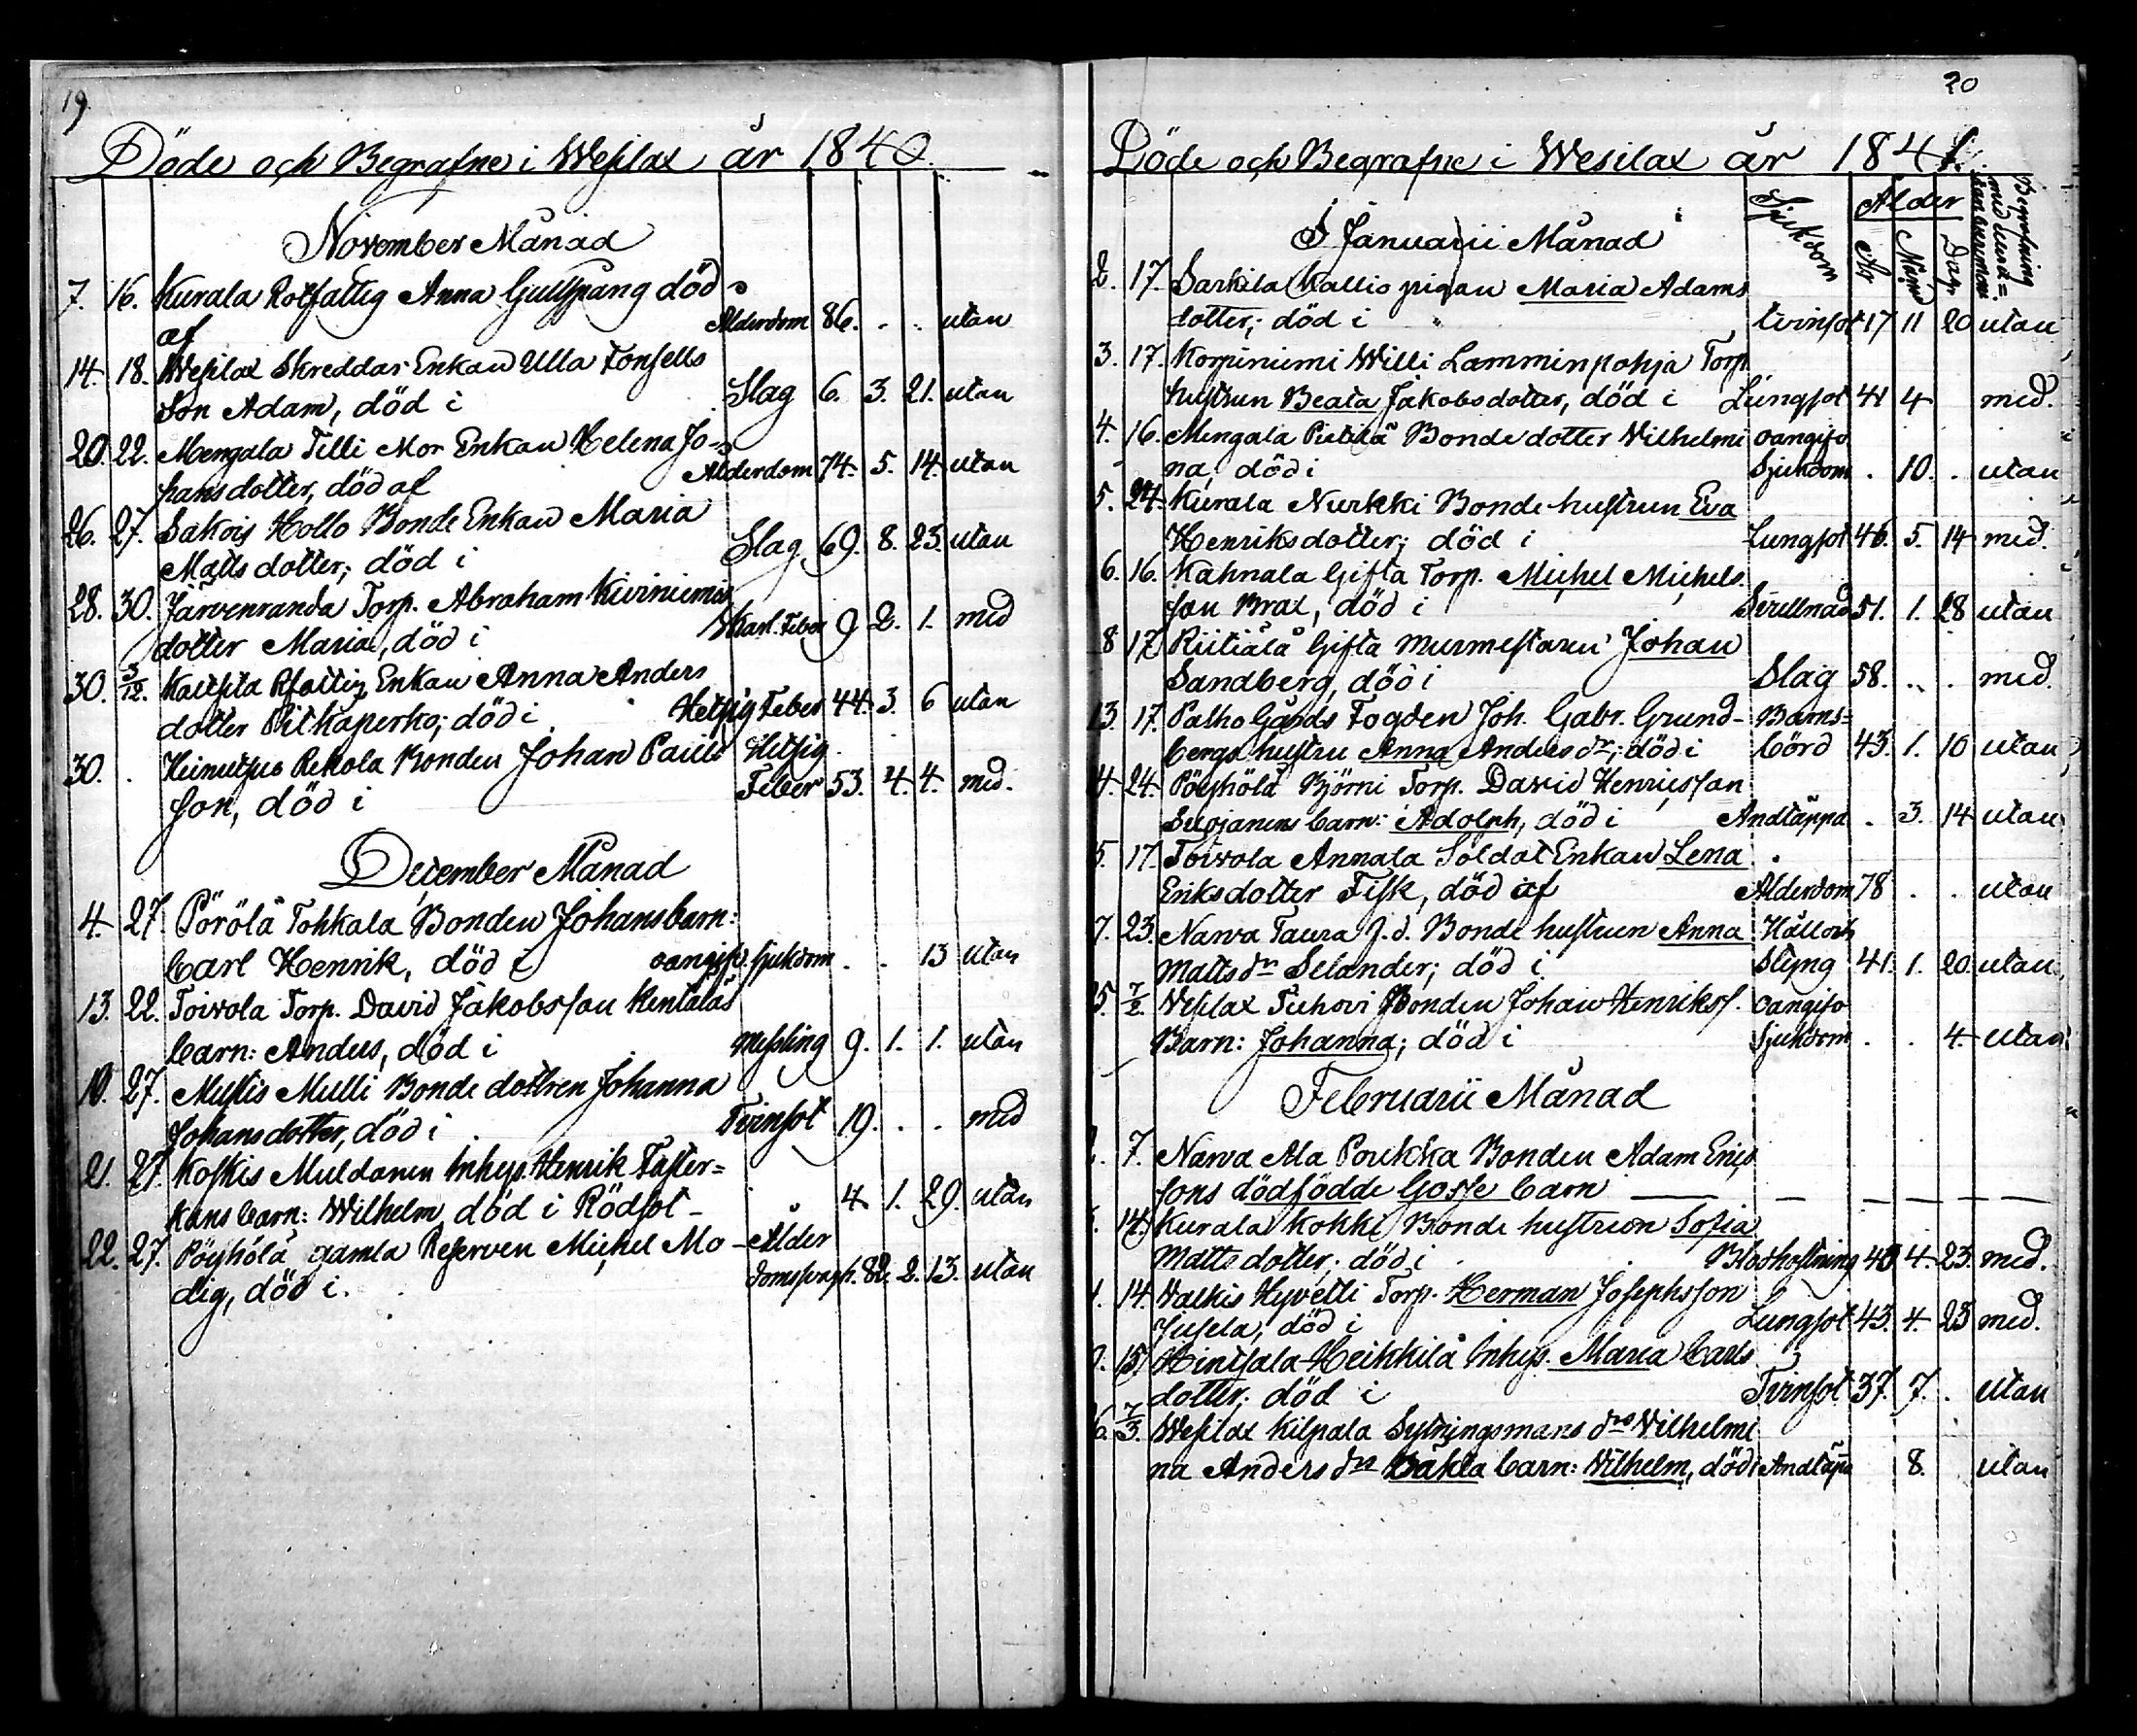 19.
Döde och Begrafne i Wesilax år 1840.
November Månad
7. 16. Kurala Rotfattig Anna Gullspang död
af Ålderdom 86. . . utan
14. 18. Wesilax Skreddar Enkan Ulla Fonsells
Son Adam, död i Slag 6. 3. 21. utan
20. 22. Mengala Tilli Mor Enkan Helena Jo-
hansdotter, död af Ålderdom 74. 5. 14. utan
26. 27. Sakois Hollo Bonde Enkan Maria
Mattsdotter; död i Slag 69. 8. 23. utan
28. 30. Järvenranda Torp. Abraham Kiviniemis
dotter Maria, död i Skarl. Feber 9 2. 1. med
30. 3/12. Kaitsila Rfattig Enkan Anna Anders
dotter Pitkaperko; död i Hetsig Feber 44. 3. 6 utan
30. . Heinusuo Rekola Bonden Johan Pauls Hetsig
son, död i Feber 53. 4. 4. med.
December Månad
4. 27. Pörölä Tohkala Bonden Johans barn:
Carl Henrik, död i oangifv. sjukdom . . 13 utan
13. 22. Toivola Torp. David Jakobsson Rentalas
barn: Anders, död i Messling 9. 1. 1. utan
10. 27. Mustis Mulli Bonde dottren Johanna
Johansdotter, död i Tvinsot 19. . . med
21. 27. Koskis Muldanen Inhys. Henrik Faster=
kans barn: Wilhelm död i Rödsot - 4 1. 29. utan
22. 27. Pöyhölä gamla Reserven Michel Mo- Ålder
dig, död i. domssvagh. 82. 2. 13. utan
20
Döde och Begrafne i Wesilax år 1841.
Sjukdom Ålder År Mån Dagr Begrafning med eller utan
I Januarii Månad
2. 17. Sarkila Kallio pigan Maria Adams
dotter; död i tvinsot 17 11 20 utan
3. 17. Korpiniemi Willi Lamminpohja Torp
hustrun Beata Jakobsdotter, död i Lungsot 41 4 med.
4. 16. Mengala Pietilä Bonde dotter Wilhelmi oangifv
na, död i Sjukdom . 10. . utan
5. 24. Kurala Nurkki Bonde hustrun Eva
Henriksdotter; död i Lungsot 46. 5. 14 med.
6. 16. Kahnala Gifta Torp. Michel Michels
son Brax, död i Svullnad 51. 1. 28 utan
8 17. Riitiala Gifta Murmestaren Johan
Sandberg, död i Slag 58. . . med.
13. 17. Palho Gårds Fogden Joh. Gabr. Grund- Barns=
bergs hustru Anna Anders dr; död i börd 43. 1. 10 utan
4. 24. Pöyhölä Björni Torp. David Henricsson
barn: Adolph, död i Andtäppa . 3. 14 utan
5. 17. Toivola Annala Soldat Enkan Lena
Eriksdotter Fisk, död af Ålderdom 78 . . utan
7. 23. Narva Taura J.d. Bonde hustrun Anna Håll och
Matts dr Selander; död i Styng 41. 1. 20. utan
25. 7/2. Wesilax Tuhovi Bonden Johan Henrikss. oangifv
Barn: Johanna; död i Sjukdom . . 4. utan
Februarii Månad
2. 7. Narva Ala Poukka Bonden Adam Erics
sons dödfödde Gosse barn — — — — — —
14. Kurala Kokki Bonde hustrun Sofia
Matts dotter; död i Blodhostning 40 4. 23. med.
14. Walkis Hyvetti Torp. Herman Josephsson
Jusela, död i Lungsot 43. 4. 23 med.
15. Hintsala Heikkila Inhys. Maria Carls
dotter; död i Tvinsot 37. 7. . utan
6. 7/3. Wesilax Kilpala Sytningsmans drs Wilhelmi
na Anders drs barn: Wilhelm, död i Andtäpa 8. utan